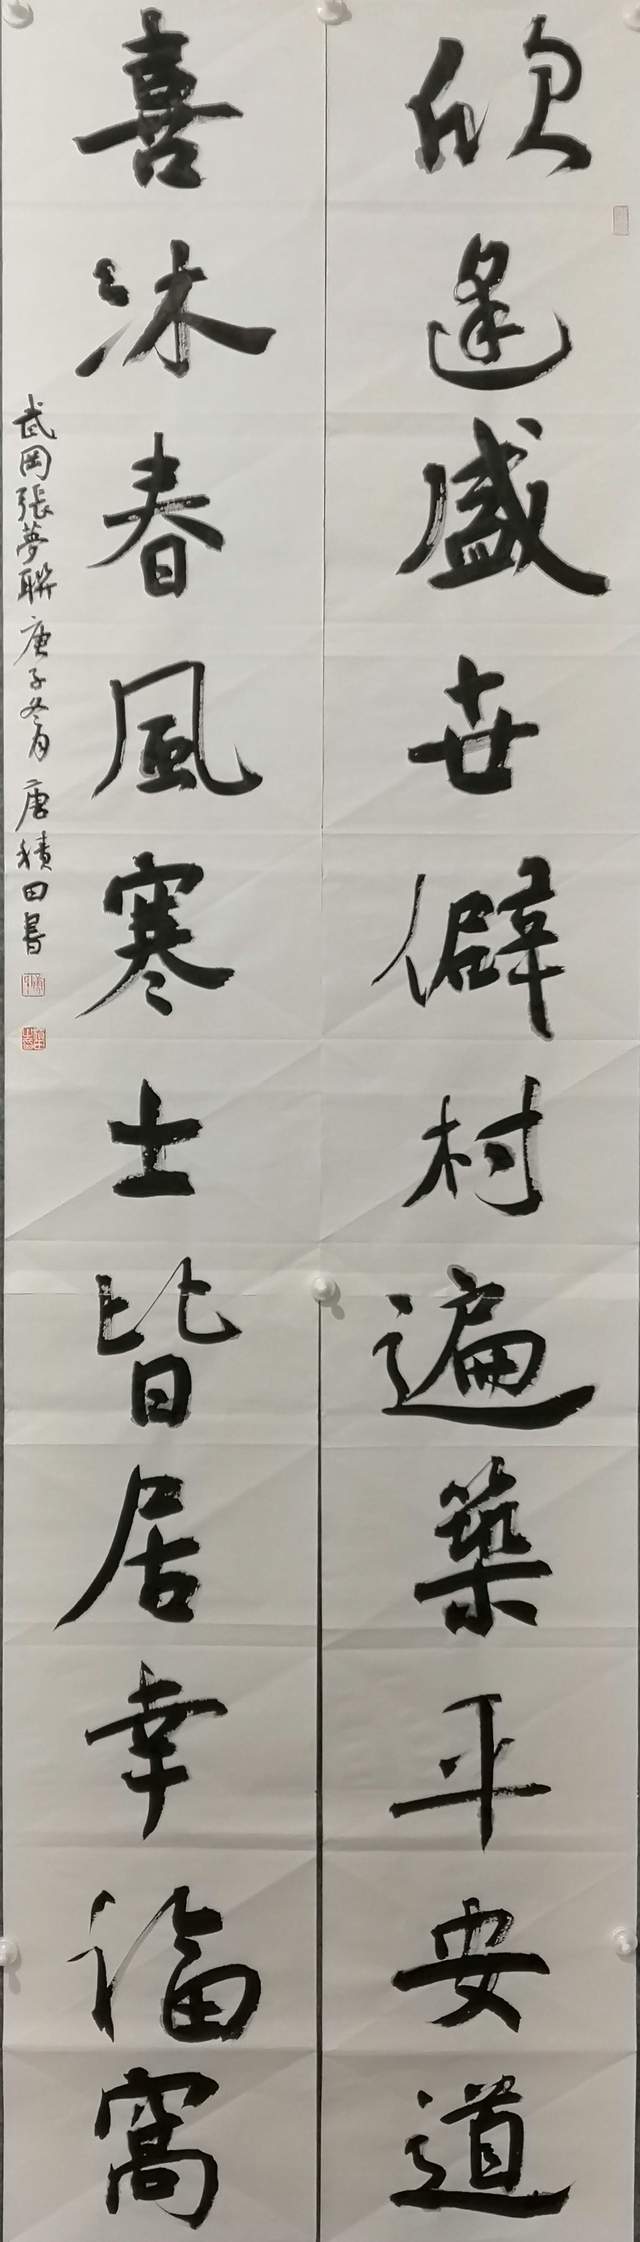 欣逢盛世僻村遍築平安道
喜沐春風寒士皆居幸福窩
武岡張夢聯庚子冬月唐積田書